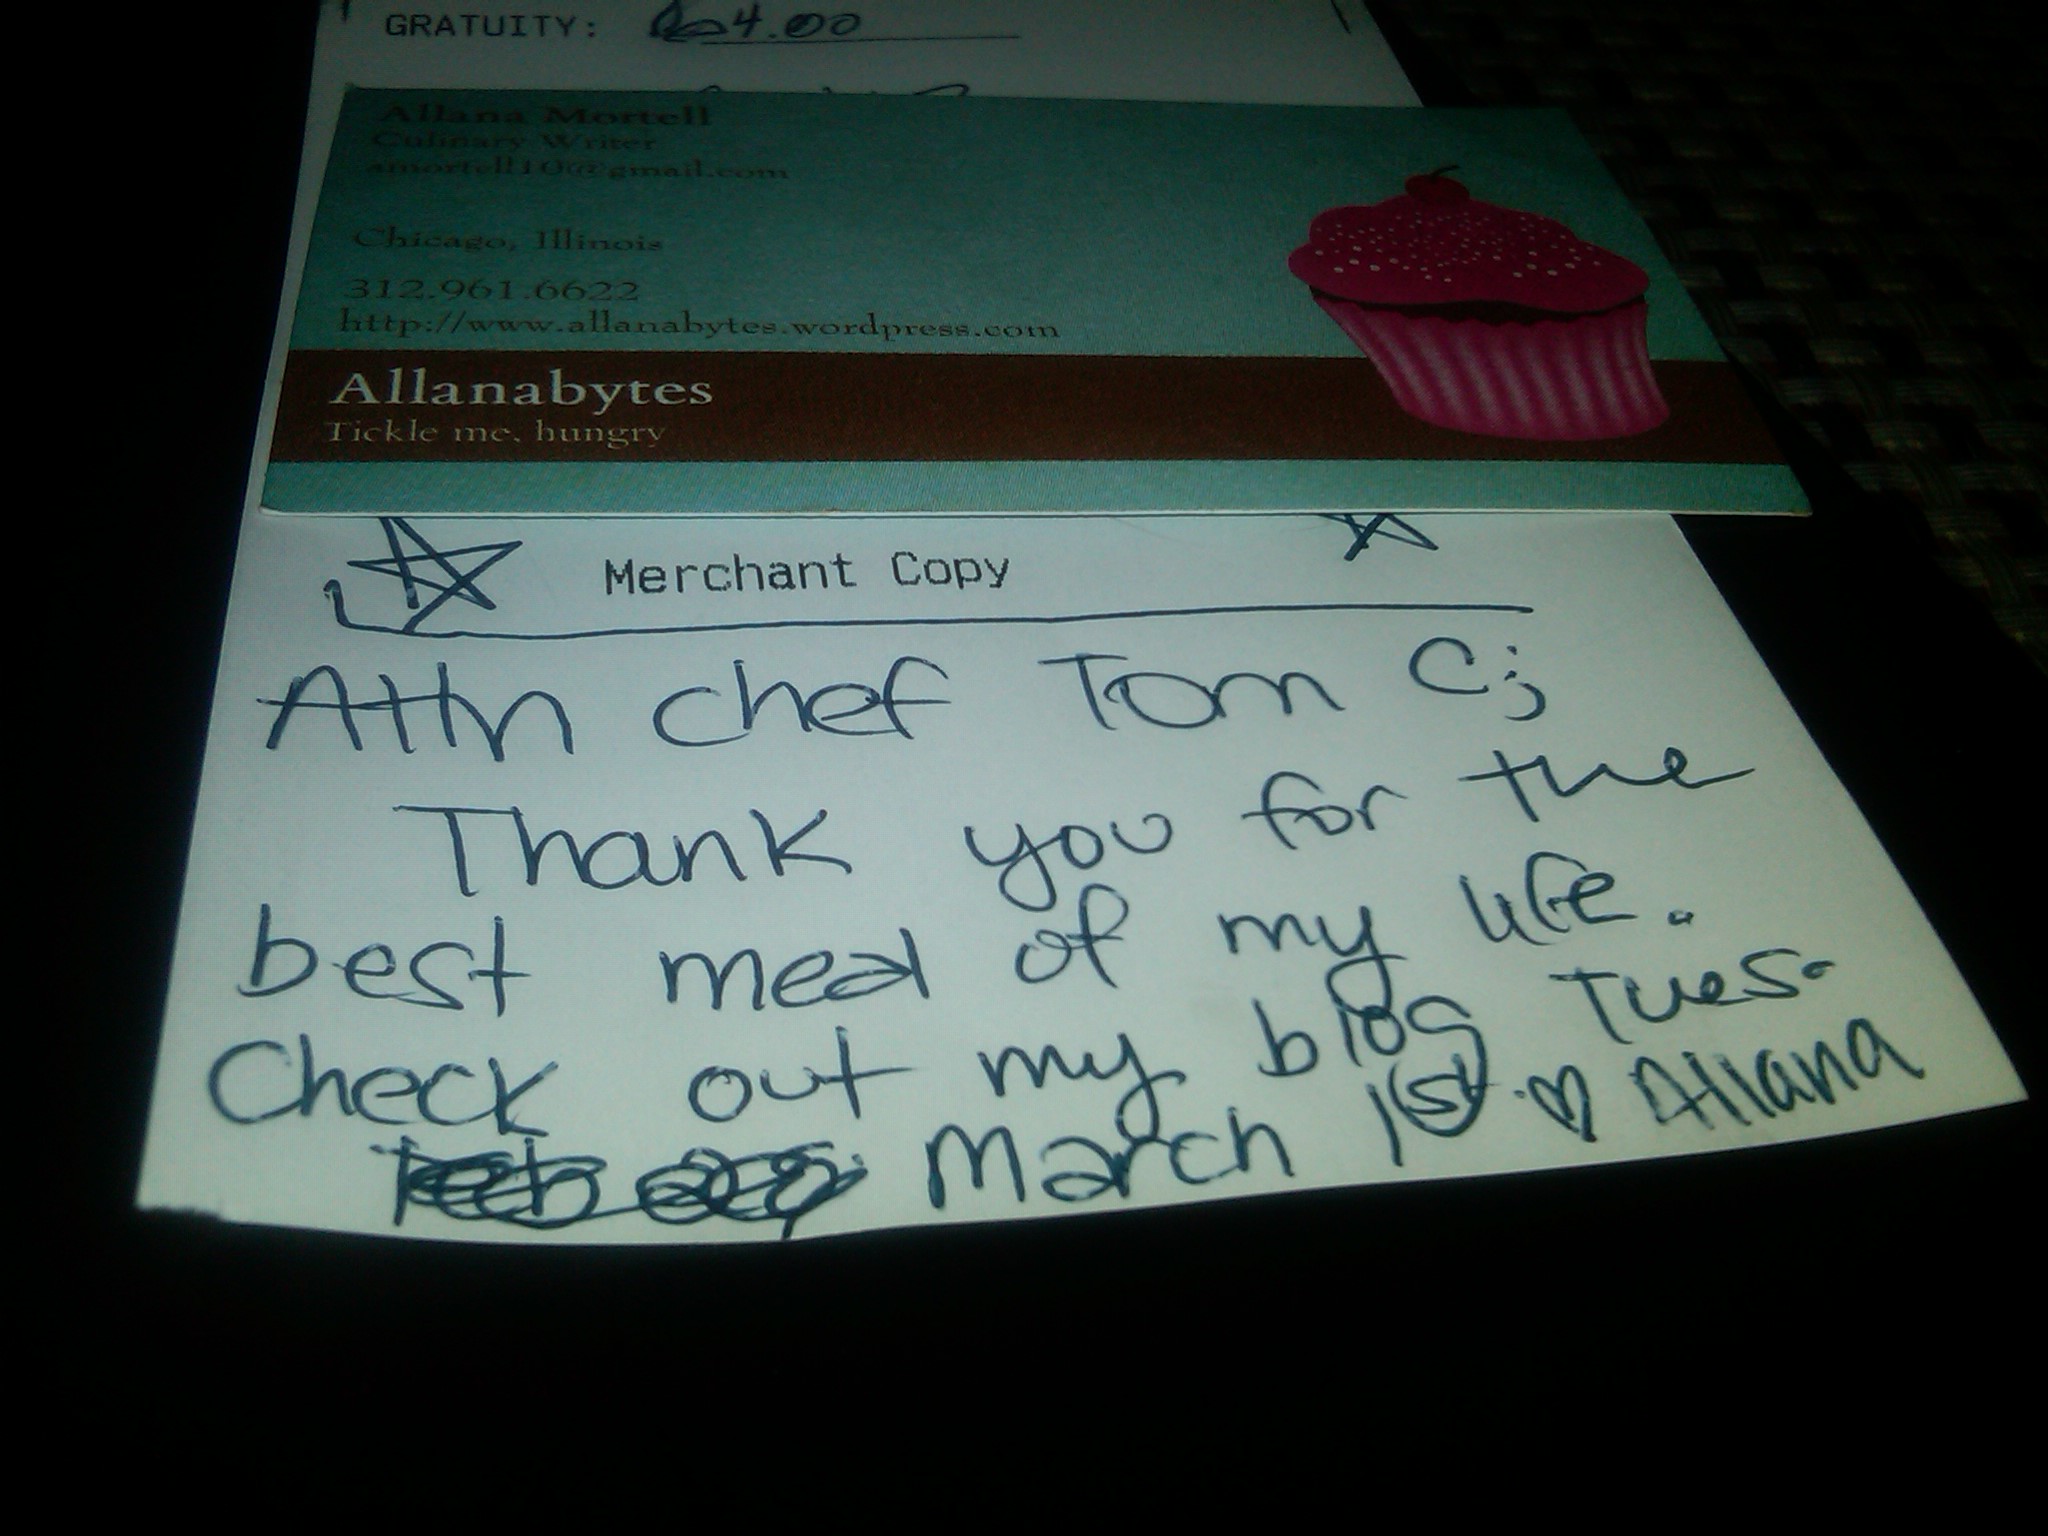 GRATUITY: 64.00
Allana Mortell
Culinary Writer
amortell10@gmail.com
Chicago, Illinois
312.961.6622
http://www.allanabytes.wordpress.com
Allanabytes
Tickle me, hungry
Merchant Copy
Attn chef Tom C;
Thank you for the
best meal of my life.
Check out my blog Tues.
March 1st. ♡ Allana